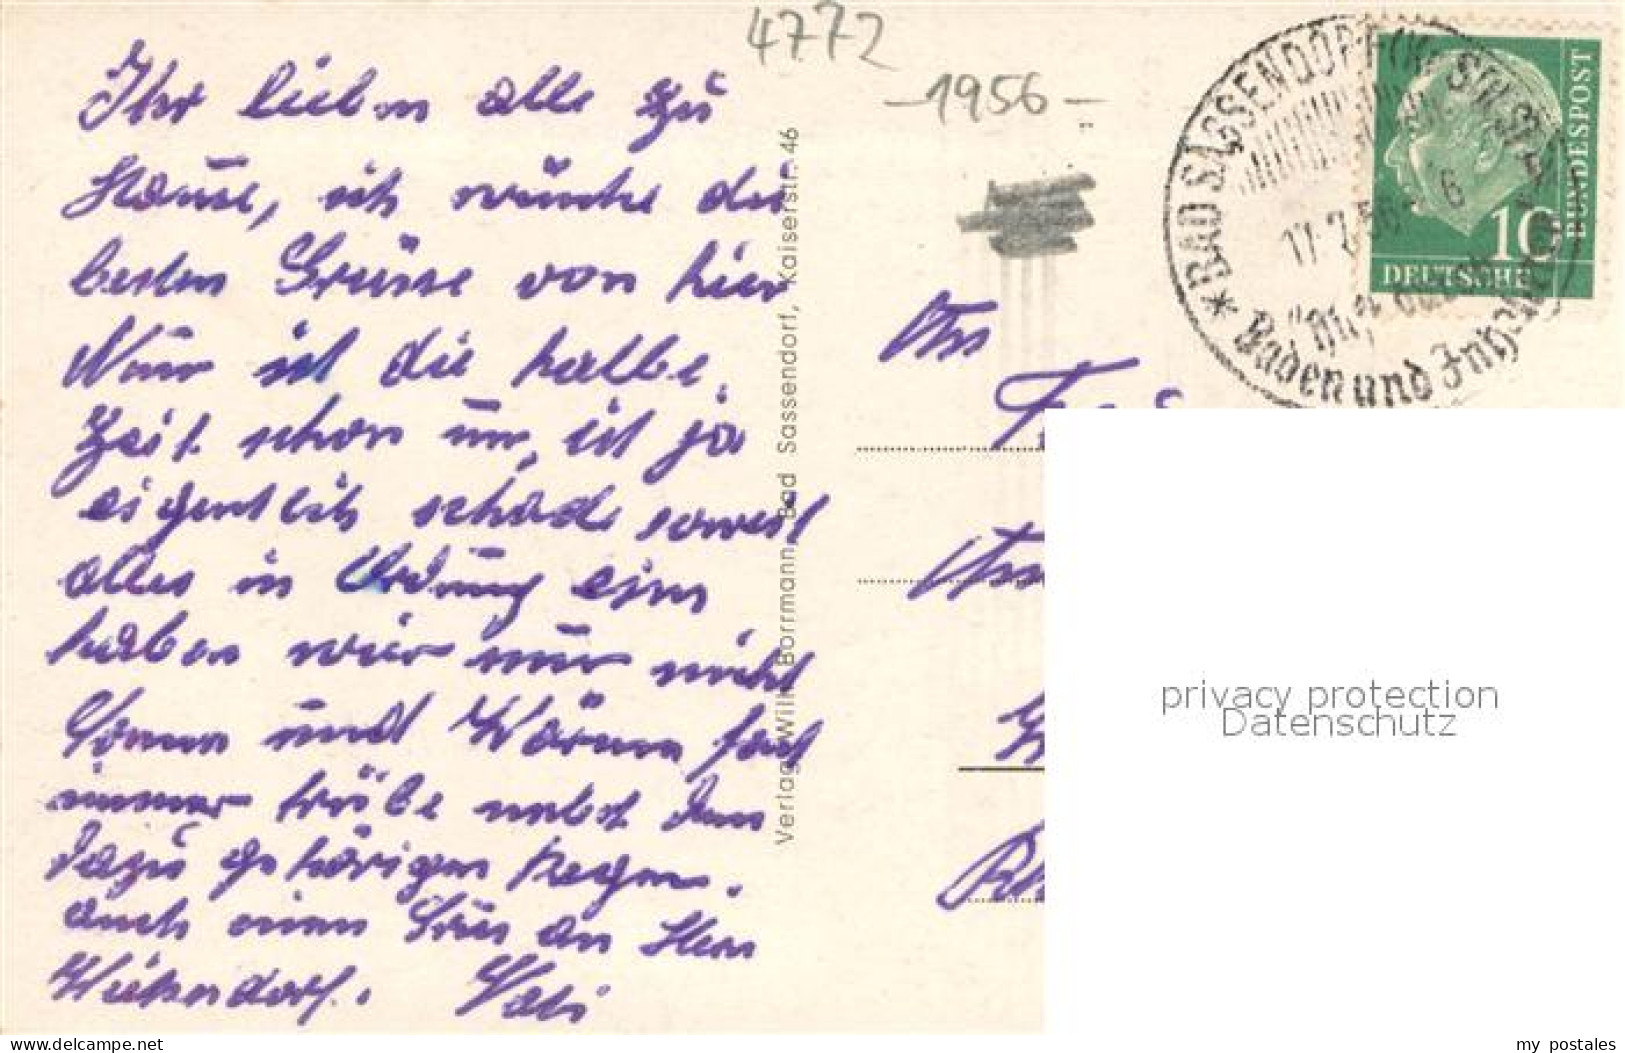 4772
-1956-
Ihr lieben alle zu
Hause, ich wünsche die
besten Grüsse von hier
Nun ist die halbe
Zeit schon um, ist ja
eigentlich schade soweit
alles in Ordnung eins
haben wir nur nicht
Sonne und Wärme fast
immer trübe nebst dem
dazu gehörigen Regen.
auch einen Grus an Herr
Vati
Verlag: Wilh. Borrmann, Bad Sassendorf, Kaiserstr. 46
An
* BAD SASSENDORF (Kr. SOEST)
17.2.56
6
Baden und
DEUTSCHE
BUNDESPOST
10
privacy protection
Datenschutz
www.delcampe.net
my_postales